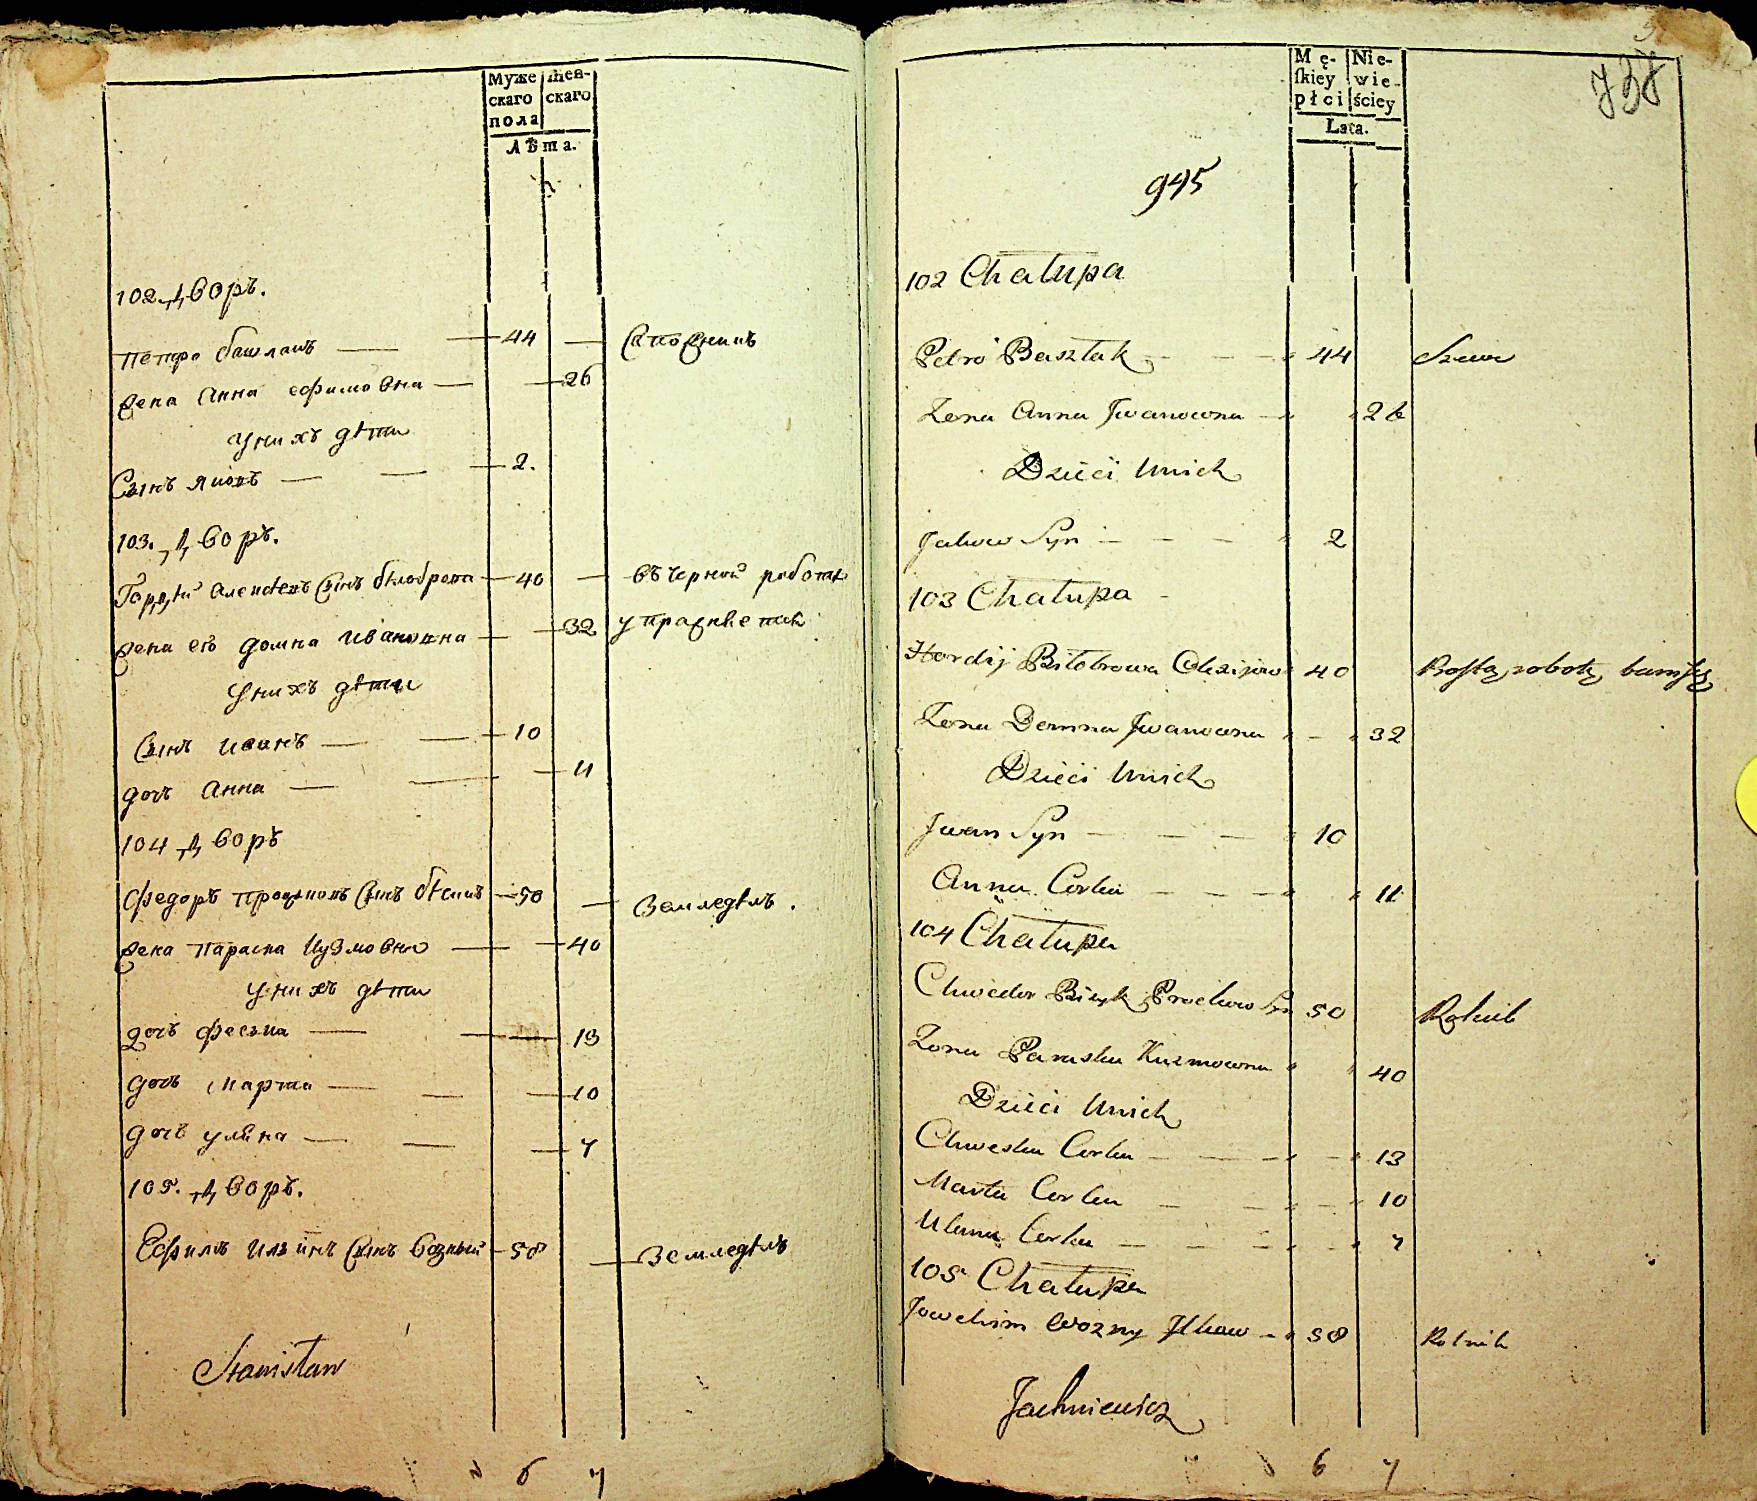 Муже
скаго
пола
Жен-
скаго
Лѣта.
102 Дворъ.
Петро башлакъ — 44 — Сапожникъ
жена Анна ефимовна — 26
у нихъ дѣти
Сынъ яковъ — 2.
103. Дворъ.
Гордѣй алексѣевъ Сынъ бѣлоброва — 40 — въ черной работѣ
жена его домна Ивановна — 32 упражняется
у нихъ дѣти
Сынъ иванъ — 10
дочь Анна — 11
104 Дворъ
Федоръ Сынъ бѣликъ — 50 — Земледѣлъ.
жена Параска Кузмовна — 40
у нихъ дѣти
дочь Феська — 13
дочь Марта — 10
дочь уляна — 7
105. Дворъ.
Ефимъ Ильинъ Сынъ Возный — 58 — Земледѣлъ
Stanisław
6 7
737
Mę-
skiey
płci
Nie-
wie-
ściey
Lata.
945
102 Chałupa
Petro Basztak — 44 Szewc
Zona Anna Iwanowna — 26
Dzieci Unich
Jakow Syn — 2
103 Chałupa
Hordij Biłobrowa Olexijow 40 Prostą robotą bawiący
Zona Domna Iwanowna — 32
Dzieci Unich
Iwan Syn — 10
Anna Corka — 11
104 Chałupa
Chwedor Bizyk Prockow Syn 50 Rolnik
Zona Paraska Kuzmowna 40
Dzieci Unich
Chweska Corka — 13
Marta Corka — 10
Ulana Corka — 7
105 Chałupa
Jowchim Wozny Ilkow — 58 Rolnik
Jachniewicz
6 7